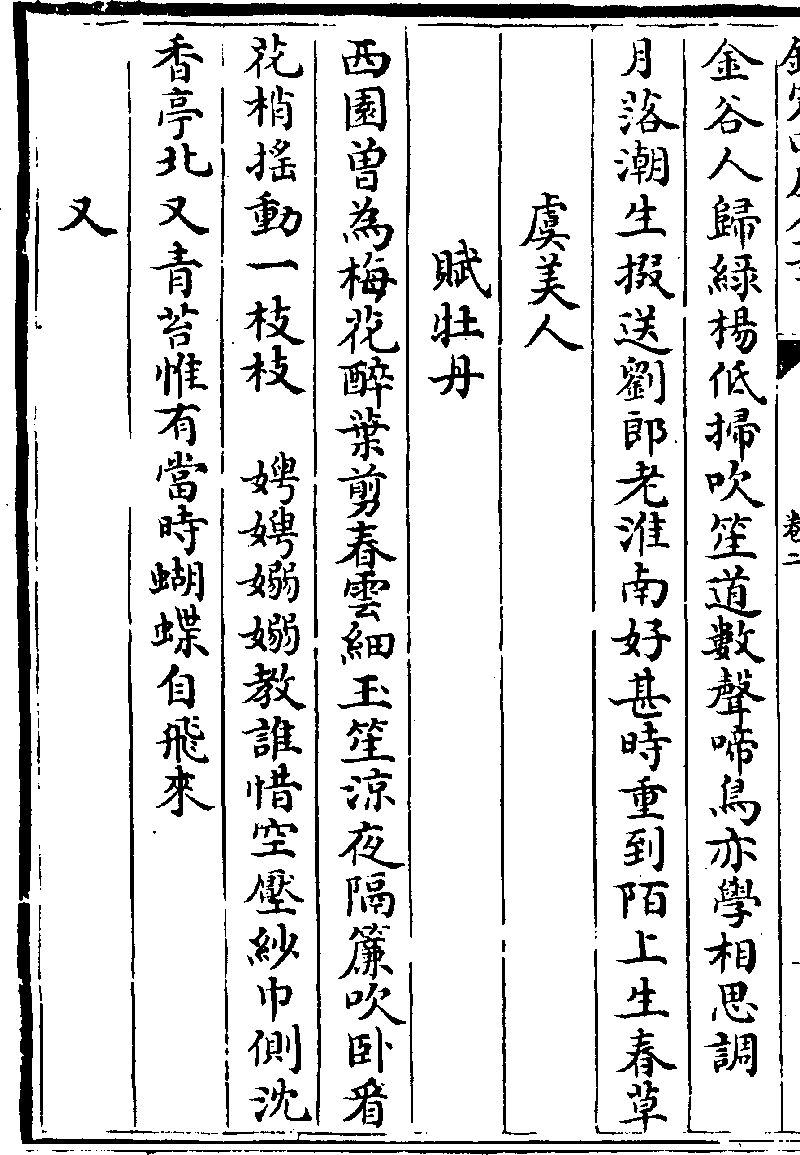 卷二
金谷人歸綠楊低掃吹笙道數聲啼鳥亦學相思調
月落潮生掇送劉郎老淮南好甚時重到陌上生春草
虞美人
賦牡丹
西園曽為梅花醉葉剪春雲細玉笙涼夜隔簾吹卧看
花梢揺動一枝枝　娉娉嫋嫋教誰惜空壓紗巾側沈
香亭北又青苔惟有當時蝴蝶自飛來
又